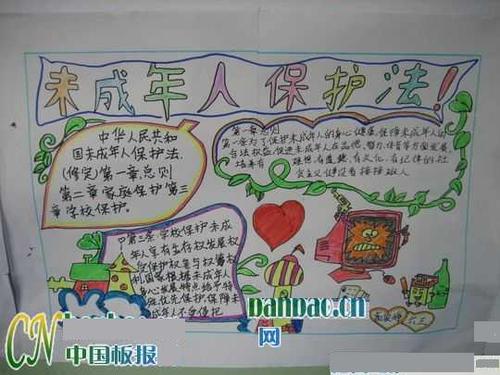 未成年人保护法！
中华人民共和
国未成年人保护法.
(修定)第一章总则
第二章家庭保护第三
章学校保护.
第一章总则
第一条为了保护未成年人的身心健康,保障未成年人的
合法权益,促进未成年人在品德、智力、体质等方面全面发展
培养有理想、有道德、有文化、有纪律的社
会主义
接班人
第三条学校保护未成
年人享有生存权发展权
受保护权参与权等权
利国家根据未成年人
身心发展特点给予特
殊优先保护保障未
成年人不受侵犯
CN
中国板报
banbao.cn
网